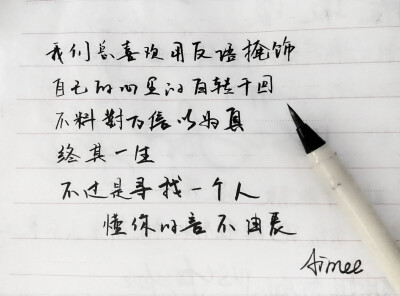 我们总喜欢用反话掩饰
自己的心里的百转千回
不料對方信以为真
终其一生
不过是寻找一个人
懂你的言不由衷
Aimee